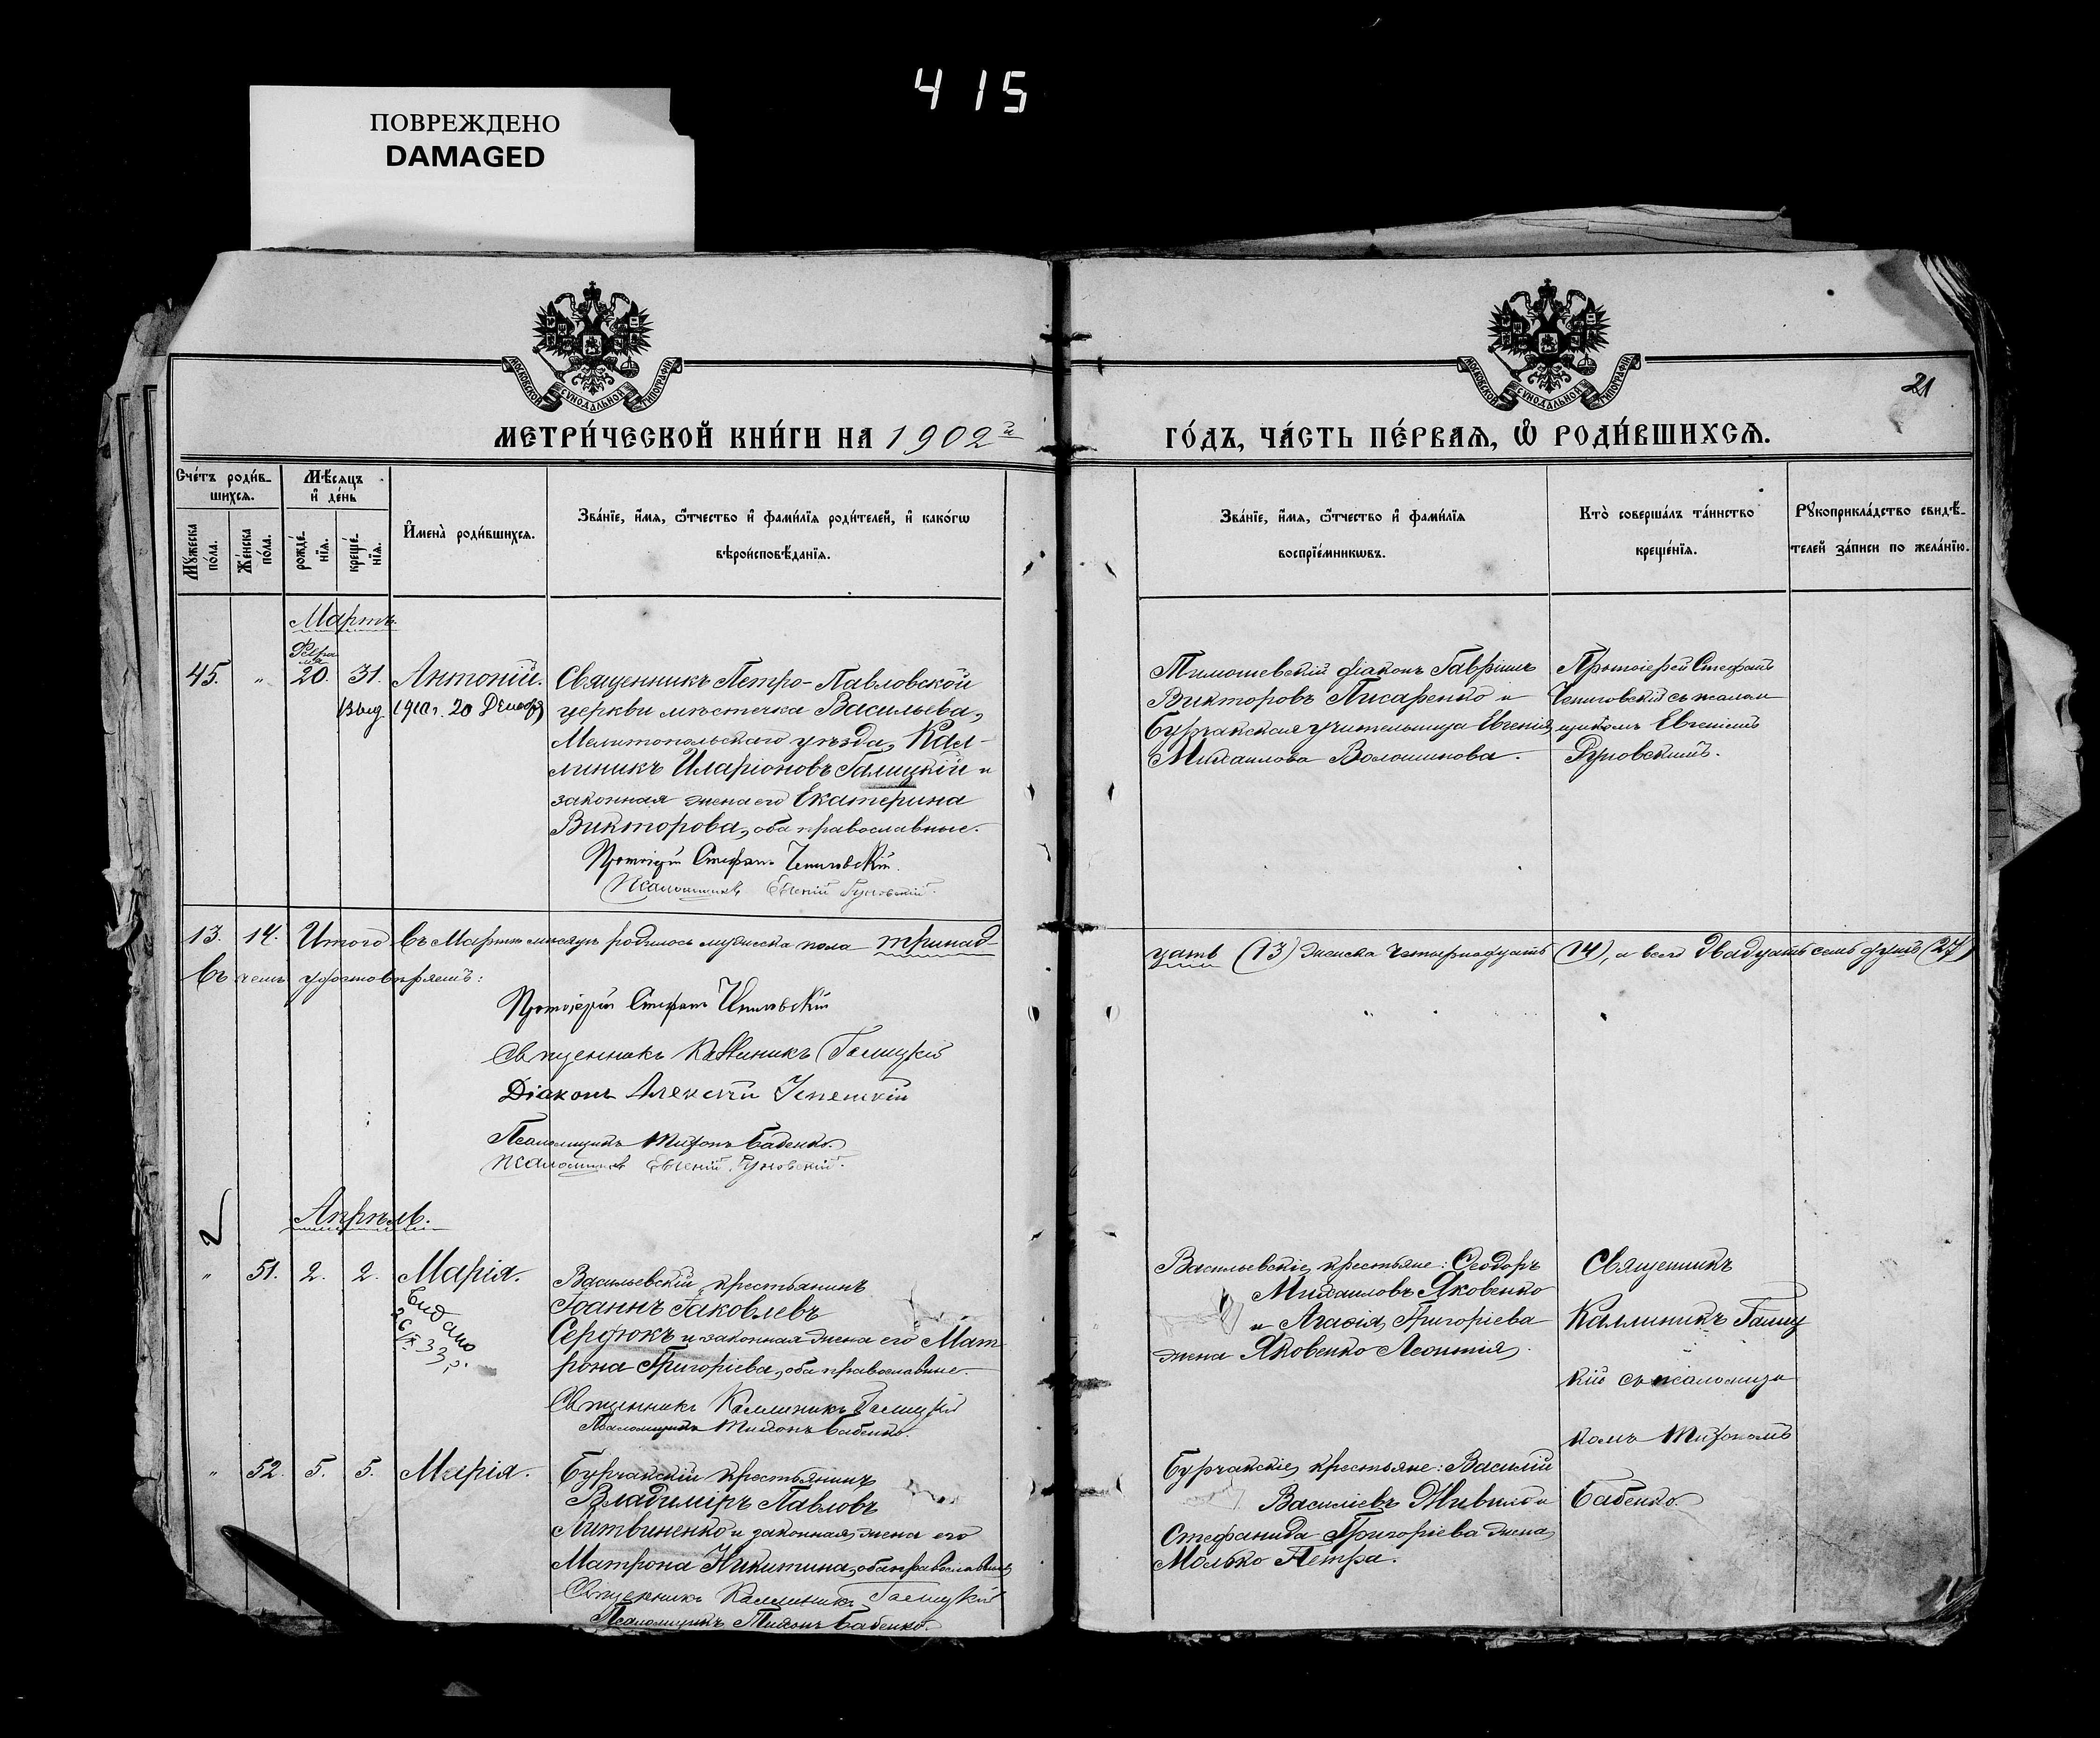 415
ПОВРЕЖДЕНО
DAMAGED
МОСКОВСКОЙ СѴНОДАЛЬНОЙ ТИПОГРАФІИ
МОСКОВСКОЙ СѴНОДАЛЬНОЙ ТИПОГРАФІИ
21
МЕТРИ́ЧЕСКОЙ КНИ́ГИ НА 1902й
ГО́ДЪ, ЧА́СТЬ ПЕ́РВАѦ, Ѡ҆ РОДИ́ВШИХСѦ.
Сче́тъ роди́в-
шихсѧ.
Мꙋ́жеска
по́ла.
Же́нска
по́ла.
Мѣ́сѧцъ
и҆ де́нь
рожде́-
нїѧ.
креще́-
нїѧ.
И҆мена̀ роди́вшихсѧ.
Зва́нїе, и҆́мѧ, ѻ҆́тчество и҆ фами́лїѧ роди́телей, и҆ како́гѡ
вѣроисповѣ́данїѧ.
Зва́нїе, и҆́мѧ, ѻ҆́тчество и҆ фами́лїѧ
воспрїе́мникѡвъ.
Кто̀ соверша́лъ та́инство
креще́нїѧ.
Рꙋкоприкла́дство свидѣ́-
телей за́писи по жела́нїю.
Мартъ.
Февра
ля
45. " 20. 31. Антоній.
Выд 1910 г. 20 Декабря
Священникъ Петро-Павловской
церкви мѣстечка Васильева,
Мелитопольскаго уѣзда, Кал-
линикъ Иларіоновъ Галицкій и
законная жена его Екатерина
Викторова, оба православные.
Протоіерей Стефанъ
Псаломщикъ Евгеній
Тимошевскій діаконъ Гавріилъ
Викторовъ Писаренко и
Бурчакская учительница Евгенія
Михаилова Волошинова.
Протоіерей Стефанъ
съ псалом
щикомъ Евгеніемъ
13. 14. Итого въ Мартѣ мѣсяцѣ родилось мужеска пола тринад-
цать (13) женска четырнадцать (14), а всего двадцать семь душъ (27)
Въ чемъ удостовѣряемъ:
Протоіерей Стефанъ
Священникъ Каллиникъ Галицкій
Діаконъ Алексій
Псаломщикъ Тихонъ Бабенко.
Псаломщикъ Евгеній
Апрѣль.
" 51. 2. 2. Марія.
Видано
26/IX 33 р.
Васильевскій крестьянинъ
Іоаннъ Іаковлевъ
Сердюкъ и законная жена его Мат
рона Григоріева, оба православные.
Священникъ Каллиникъ Галицкій
Псаломщикъ Тихонъ Бабенко.
Васильевскіе крестьяне: Ѳеодоръ
Михаиловъ Яковенко
и Агаѳія Григоріева
жена Яковенко Леонтія.
Священникъ
Каллиникъ Галиц
кій съ псаломщи
комъ Тихономъ
Бабенко.
" 52. 5. 5. Марія.
Бурчакскій крестьянинъ
Владиміръ Павловъ
Литвиненко и законная жена его
Матрона Никитина, оба православные
Священникъ Каллиникъ Галицкій
Псаломщикъ Тихонъ Бабенко.
Бурчакскіе крестьяне: Василій
Василіевъ Живило и
Стефанида Григоріева жена
Молько Петра.